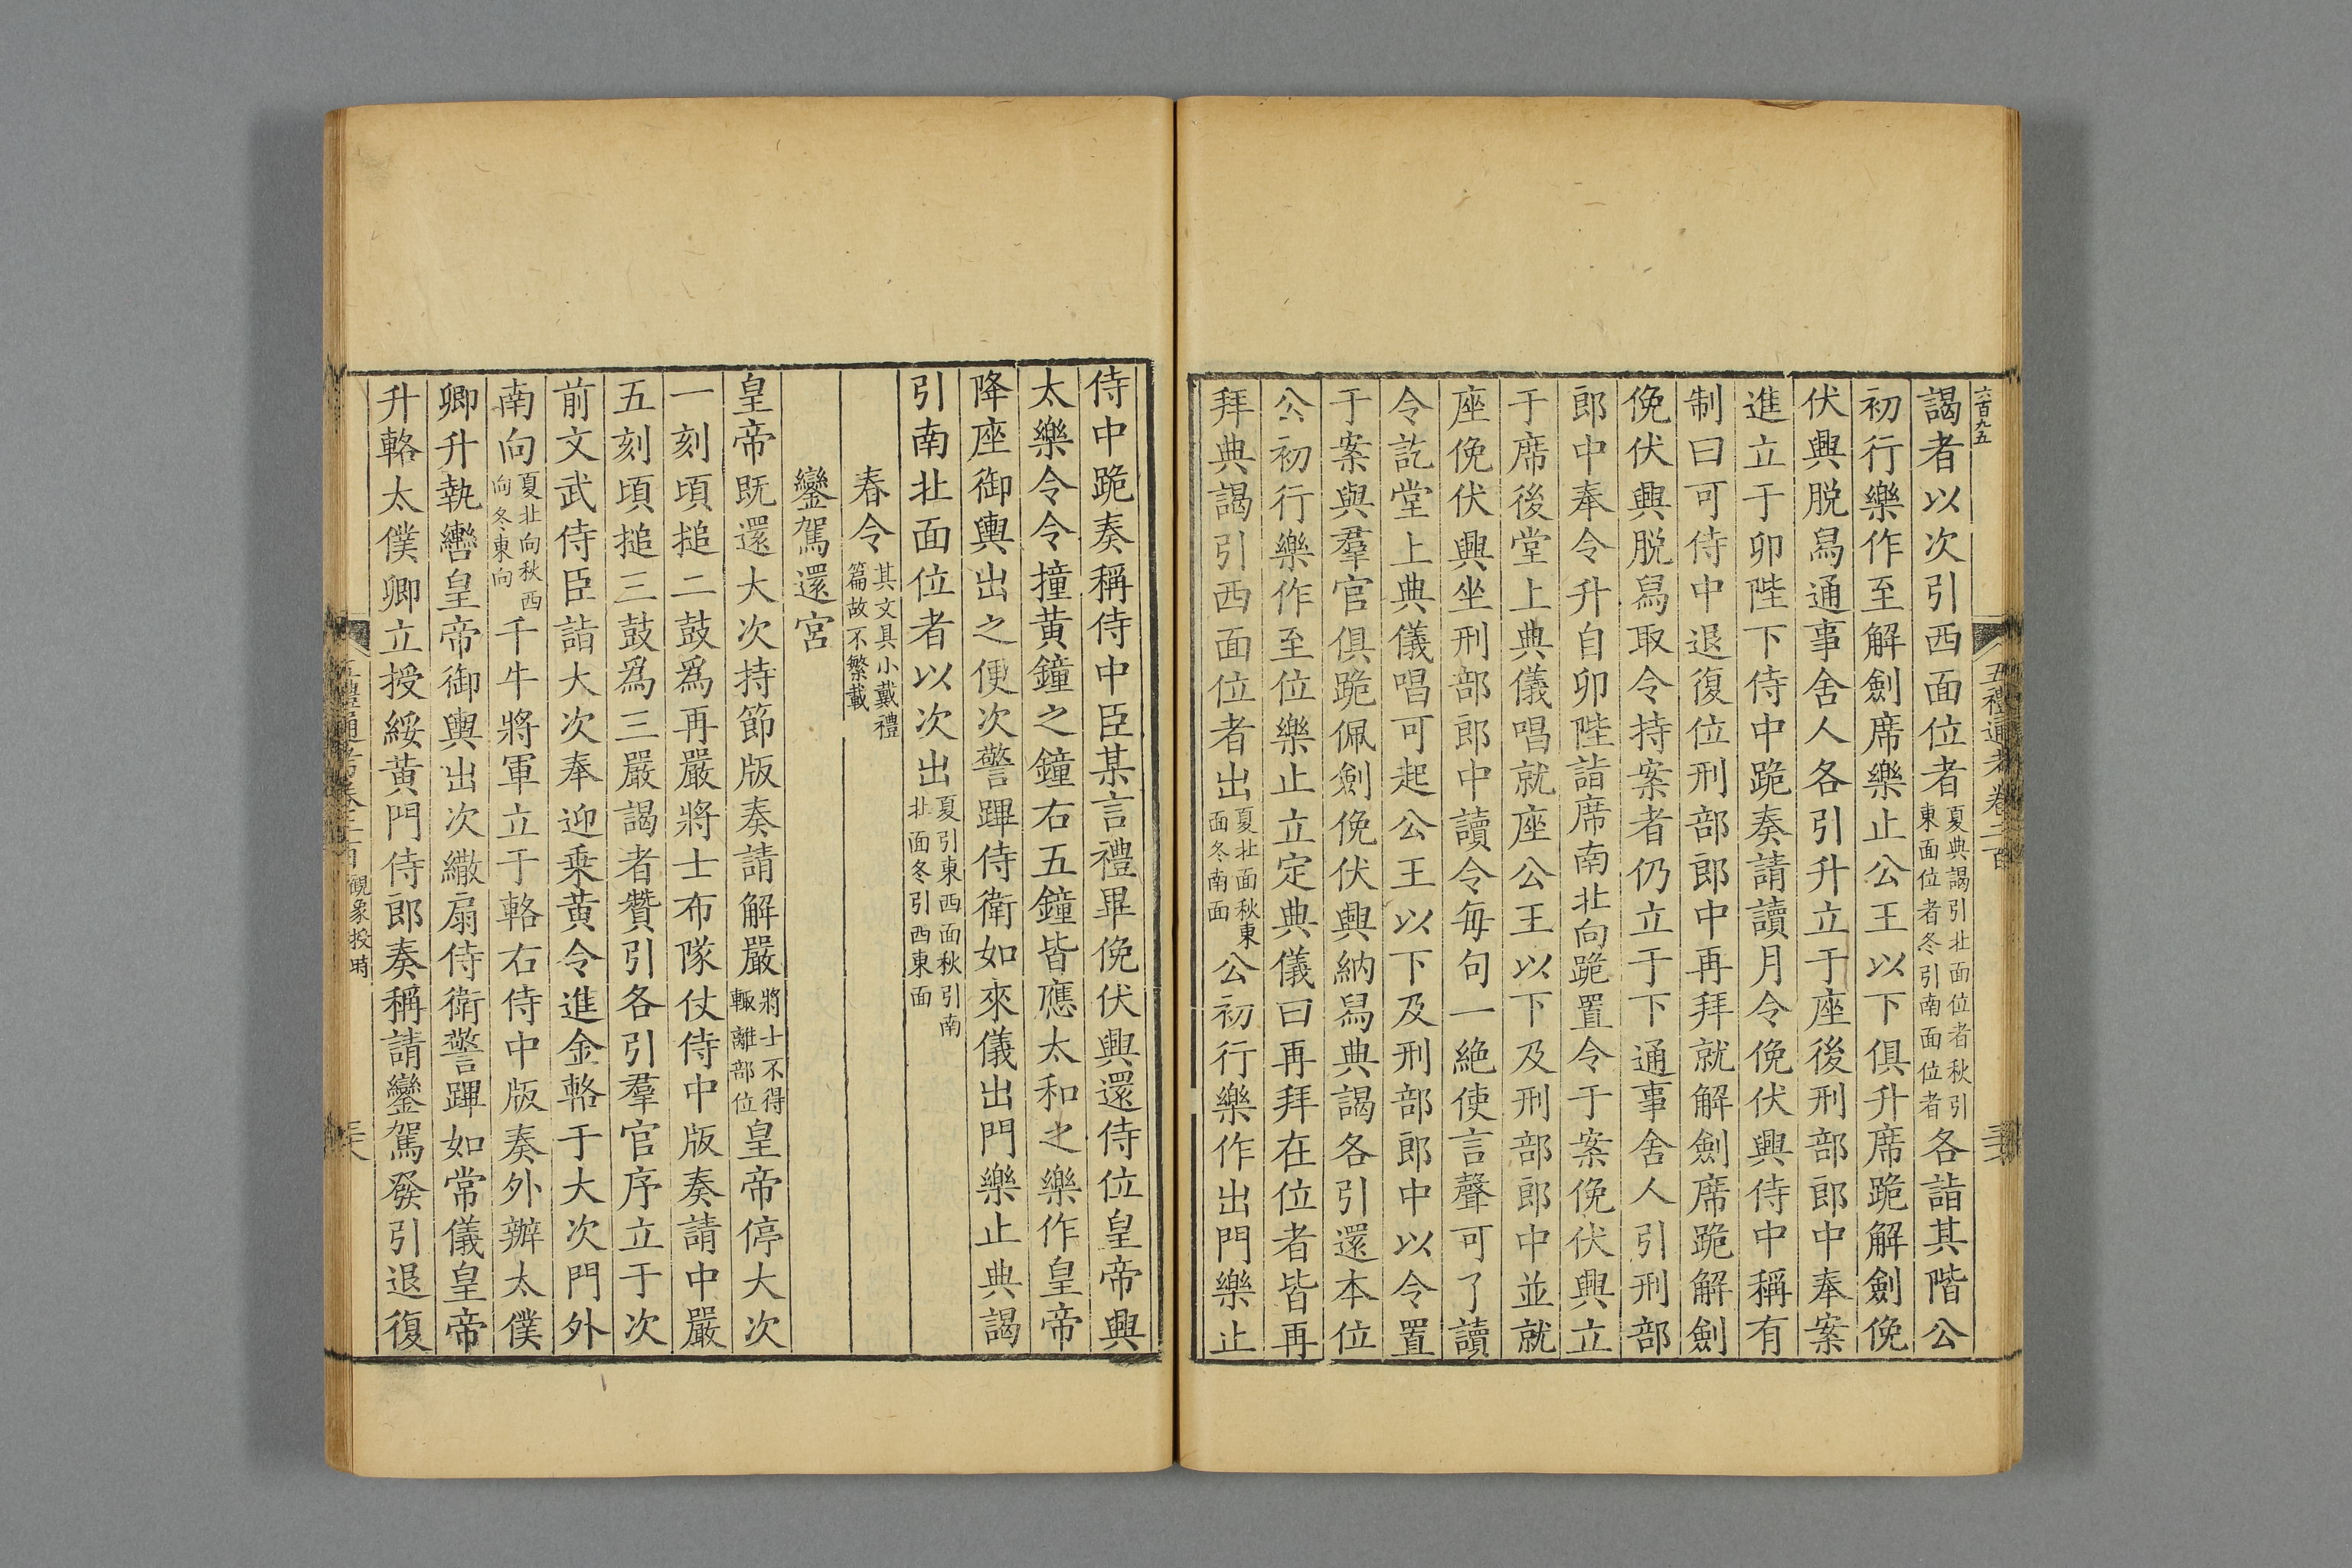 六百九五
五禮通考卷二百
謁者以次引西面位者夏典謁引北面位者秋引東面位者冬引南面位者各詣其階公
初行樂作至解劍席樂止公王以下俱升席跪解劍俛
伏興脫舄通事舍人各引升立于座後刑部郎中奉案
進立于卯陛下侍中跪奏請讀月令俛伏興侍中稱有
制曰可侍中退復位刑部郎中再拜就解劍席跪解劍
俛伏興脫舄取令持案者仍立于下通事舍人引刑部
郎中奉令升自卯陛詣席南北向跪置令于案俛伏興立
于席後堂上典儀唱就座公王以下及刑部郎中並就
座俛伏興坐刑部郎中讀令每句一絕使言聲可了讀
令訖堂上典儀唱可起公王以下及刑部郎中以令置
于案與羣官俱跪佩劍俛伏興納舄典謁各引還本位
公初行樂作至位樂止立定典儀曰再拜在位者皆再
拜典謁引西面位者出夏北面秋東面冬南面公初行樂作出門樂止
侍中跪奏稱侍中臣某言禮畢俛伏興還侍位皇帝興
太樂令令撞黃鐘之鐘右五鐘皆應太和之樂作皇帝
降座御輿出之便次警蹕侍衛如來儀出門樂止典謁
引南北面位者以次出夏引東西面秋引南北面冬引西東面
春令其文具小戴禮篇故不繁載
鑾駕還宮
皇帝既還大次持節版奏請解嚴將士不得輒離部位皇帝停大次
一刻頃搥二鼓爲再嚴將士布隊仗侍中版奏請中嚴
五刻頃搥三鼓爲三嚴謁者贊引各引羣官序立于次
前文武侍臣詣大次奉迎乘黃令進金輅于大次門外
南向夏北向秋西向冬東向千牛將軍立于輅右侍中版奏外辦太僕
卿升執轡皇帝御輿出次繖扇侍衛警蹕如常儀皇帝
升輅太僕卿立授綏黃門侍郎奏稱請鑾駕發引退復
五禮通考卷二百 觀象授時